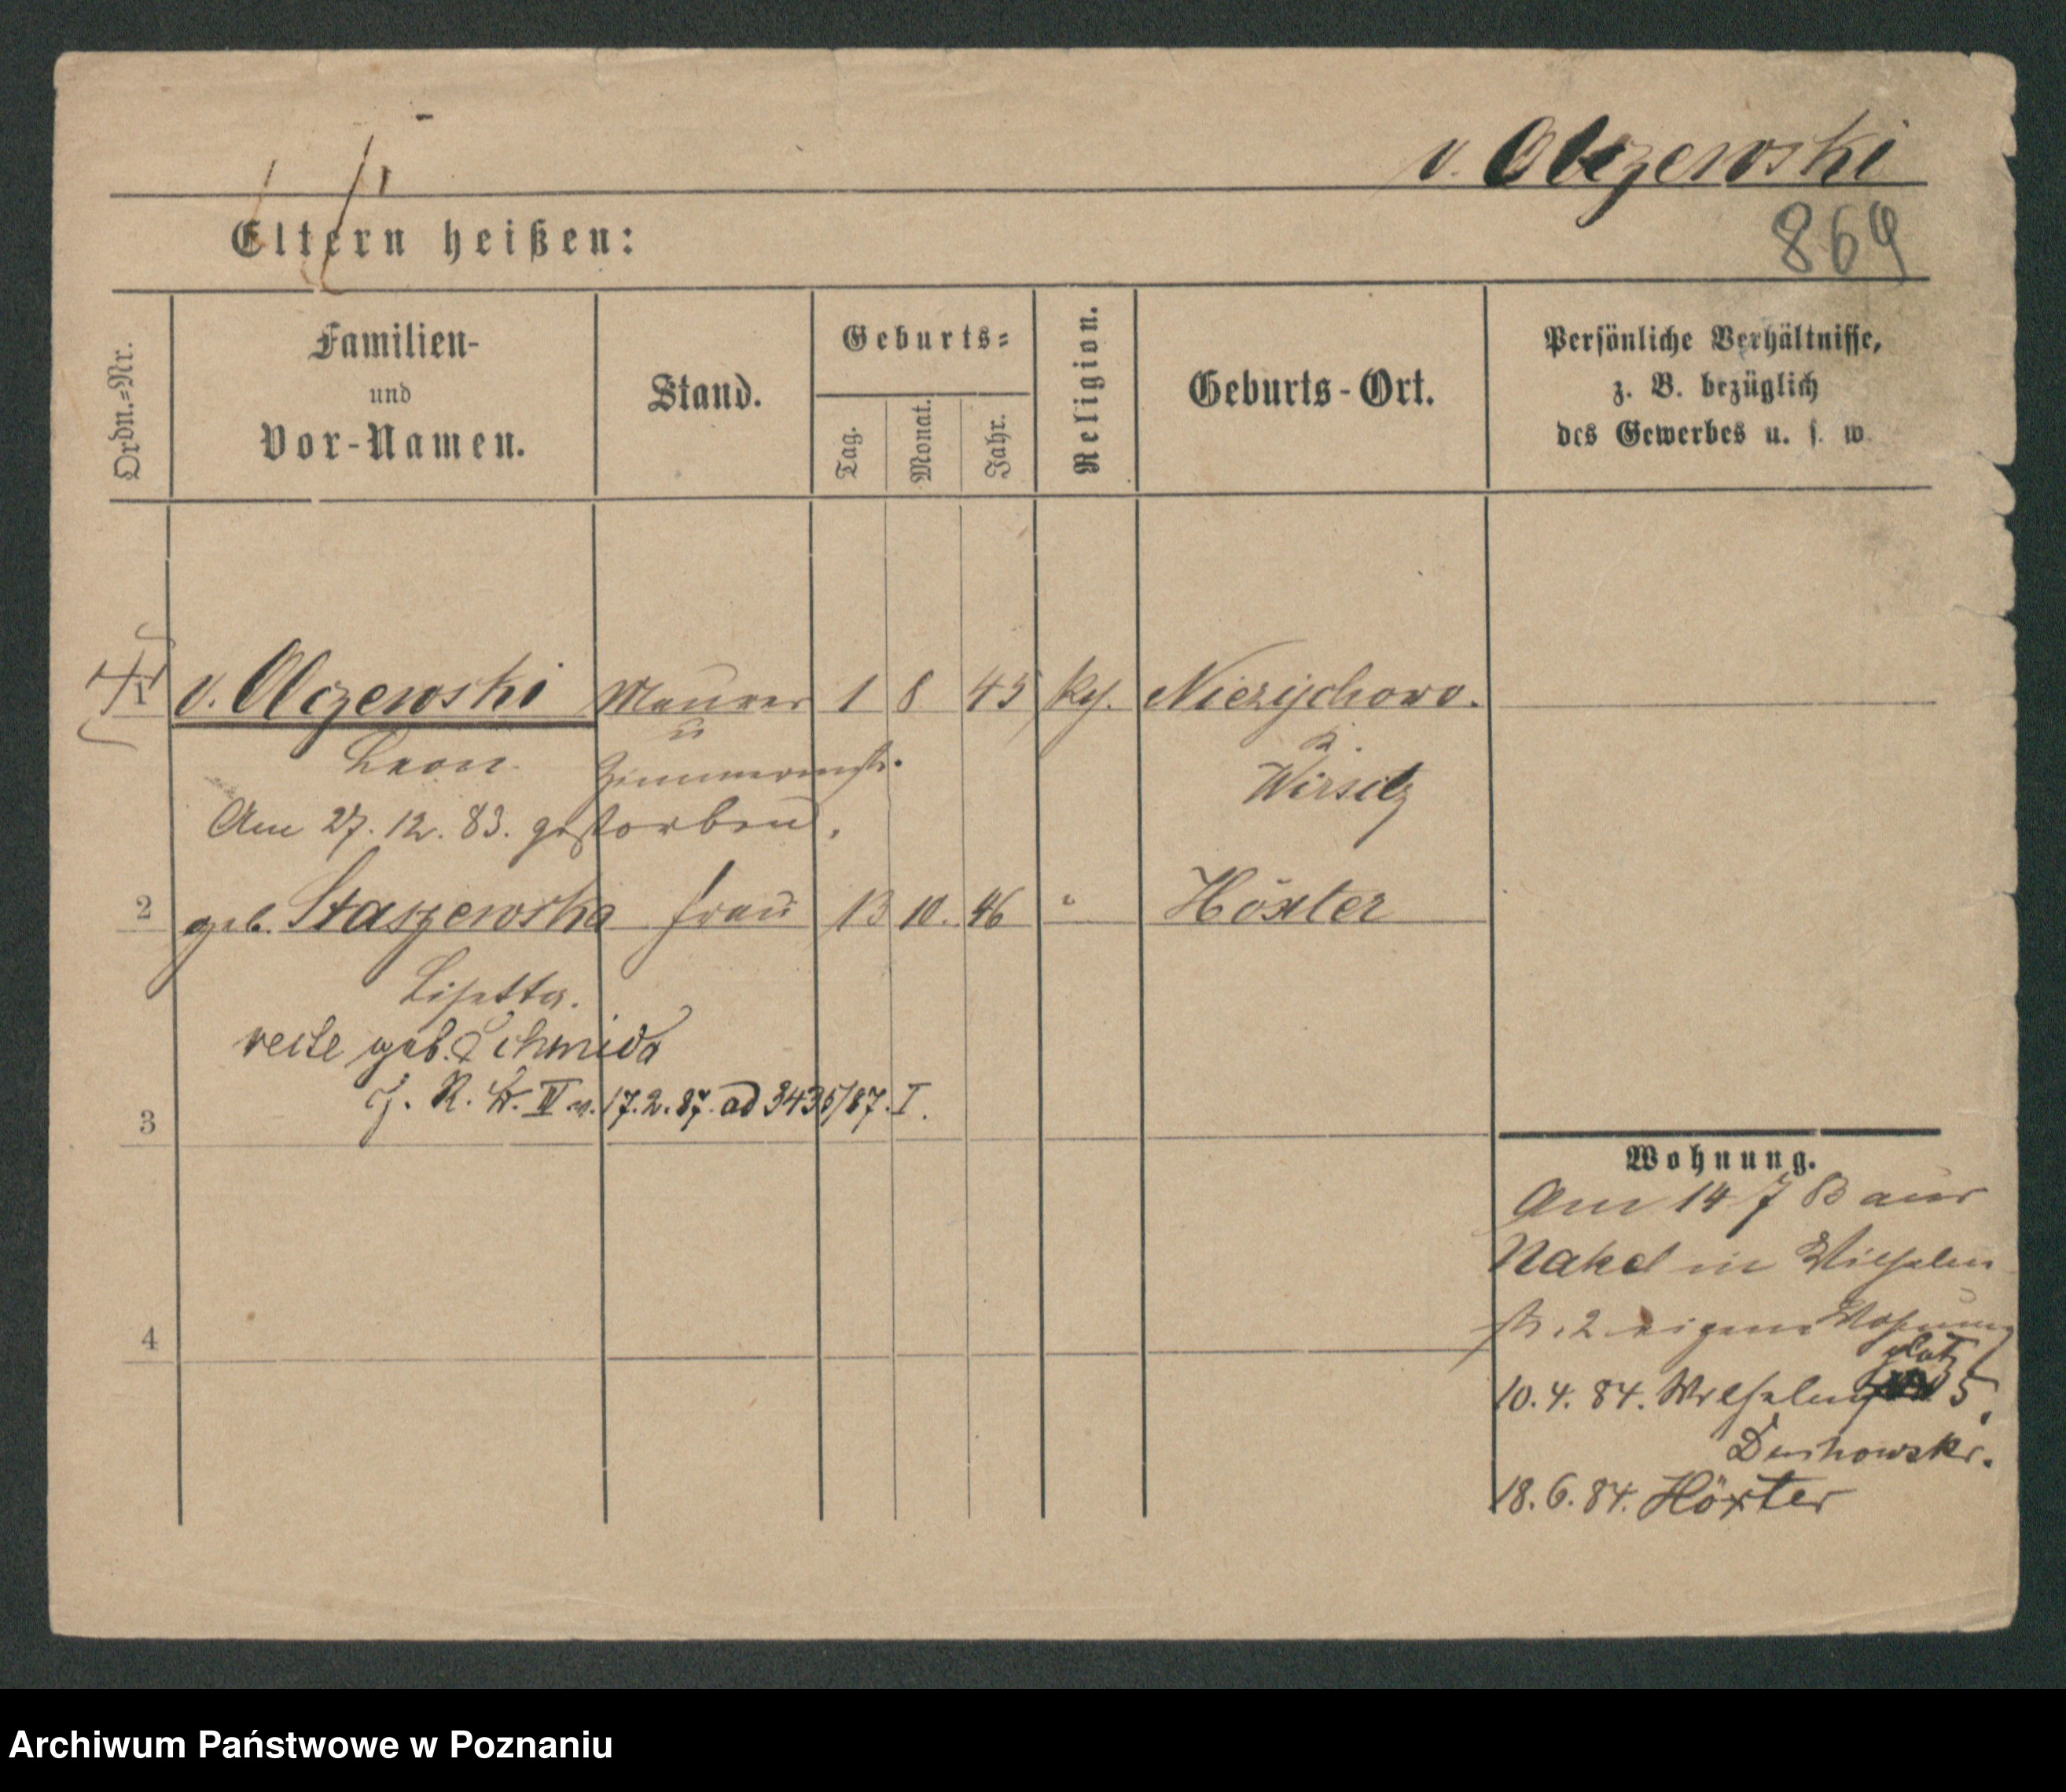 v. Olczewski
869
Eltern heißen:
Ordn.=Nr.
Familien-
und
Vor-Namen.
Stand.
Geburts=
Tag.
Monat.
Jahr.
Religion.
Geburts-Ort.
Persönliche Verhältnisse,
z. B. bezüglich
des Gewerbes u. s. w.
1 v. Olczewski Maurer 1 8 45 kath. Niezychowo.
u
Leon Zimmermstr. K.
Wirsitz
Am 27. 12. 83. gestorben.
2 geb. Staszewska Frau 13 10. 46 " Höxter
Lisetta.
recte geb. Schmidt
J. R. V. IV v. 17. 2. 87. ad 3435/87. I.
3
4
Wohnung.
Am 14 7 83 aus
Nakel in Wilhelm
str. 2 eigene Wohnung
platz
10. 4. 84. Wilhelms 5.
18. 6. 84. Höxter
Archiwum Państwowe w Poznaniu